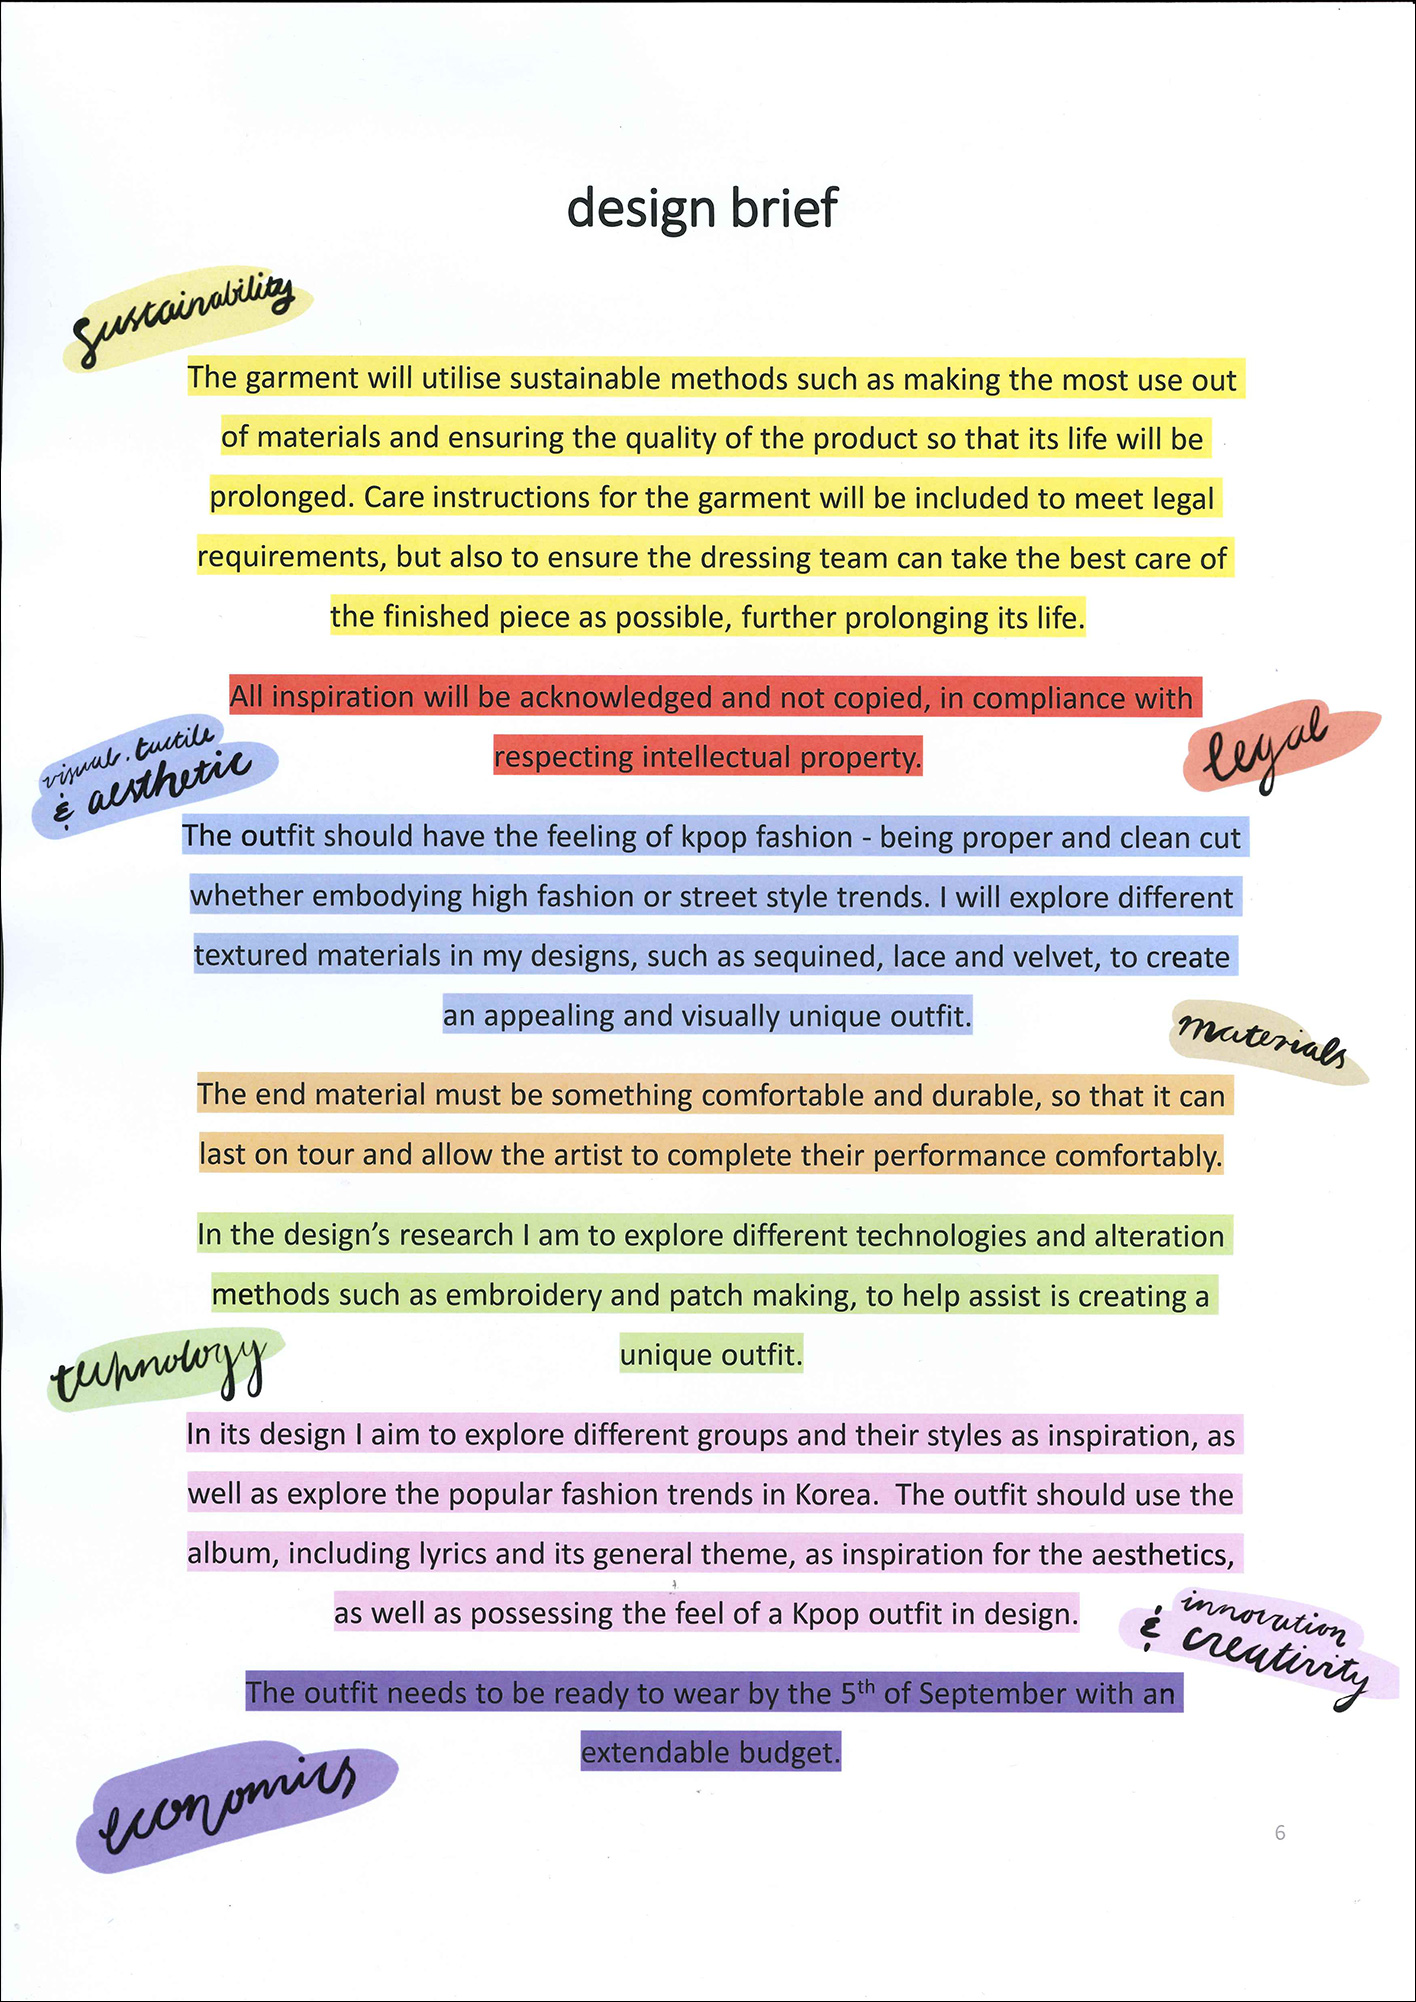 design brief
sustainability
The garment will utilise sustainable methods such as making the most use out
of materials and ensuring the quality of the product so that its life will be
prolonged. Care instructions for the garment will be included to meet legal
requirements, but also to ensure the dressing team can take the best care of
the finished piece as possible, further prolonging its life.
All inspiration will be acknowledged and not copied, in compliance with
respecting intellectual property.
legal
visual. tactile
& aesthetic
The outfit should have the feeling of kpop fashion - being proper and clean cut
whether embodying high fashion or street style trends. I will explore different
textured materials in my designs, such as sequined, lace and velvet, to create
an appealing and visually unique outfit.
materials
The end material must be something comfortable and durable, so that it can
last on tour and allow the artist to complete their performance comfortably.
In the design’s research I am to explore different technologies and alteration
methods such as embroidery and patch making, to help assist is creating a
unique outfit.
technology
In its design I aim to explore different groups and their styles as inspiration, as
well as explore the popular fashion trends in Korea.  The outfit should use the
album, including lyrics and its general theme, as inspiration for the aesthetics,
as well as possessing the feel of a Kpop outfit in design.
innovation
& creativity
The outfit needs to be ready to wear by the 5th of September with an
extendable budget.
economics
6